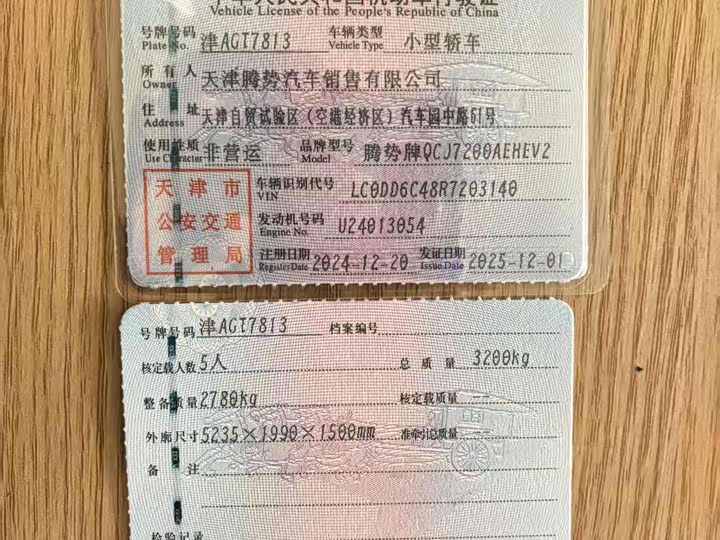 中华人民共和国机动车行驶证
Vehicle License of the People's Republic of China
号牌号码 津AGT7813 车辆类型 小型轿车
Plate No. Vehicle Type
所有人 天津腾势汽车销售有限公司
Owner
住址 天津自贸试验区（空港经济区）汽车园中路61号
Address
使用性质 非营运 品牌型号 腾势牌QCJ7200AEHEV2
Use Character Model
天津市
公安交通
管理局
车辆识别代号 LC0DD6C48R7203140
VIN
发动机号码 U24013054
Engine No.
注册日期 2024-12-20 发证日期 2025-12-01
Register Date Issue Date
号牌号码 津AGT7813 档案编号
核定载人数 5人 总质量 3200kg
整备质量 2780kg 核定载质量 --
外廓尺寸 5235×1990×1500mm 准牵引总质量 --
备注
检验记录